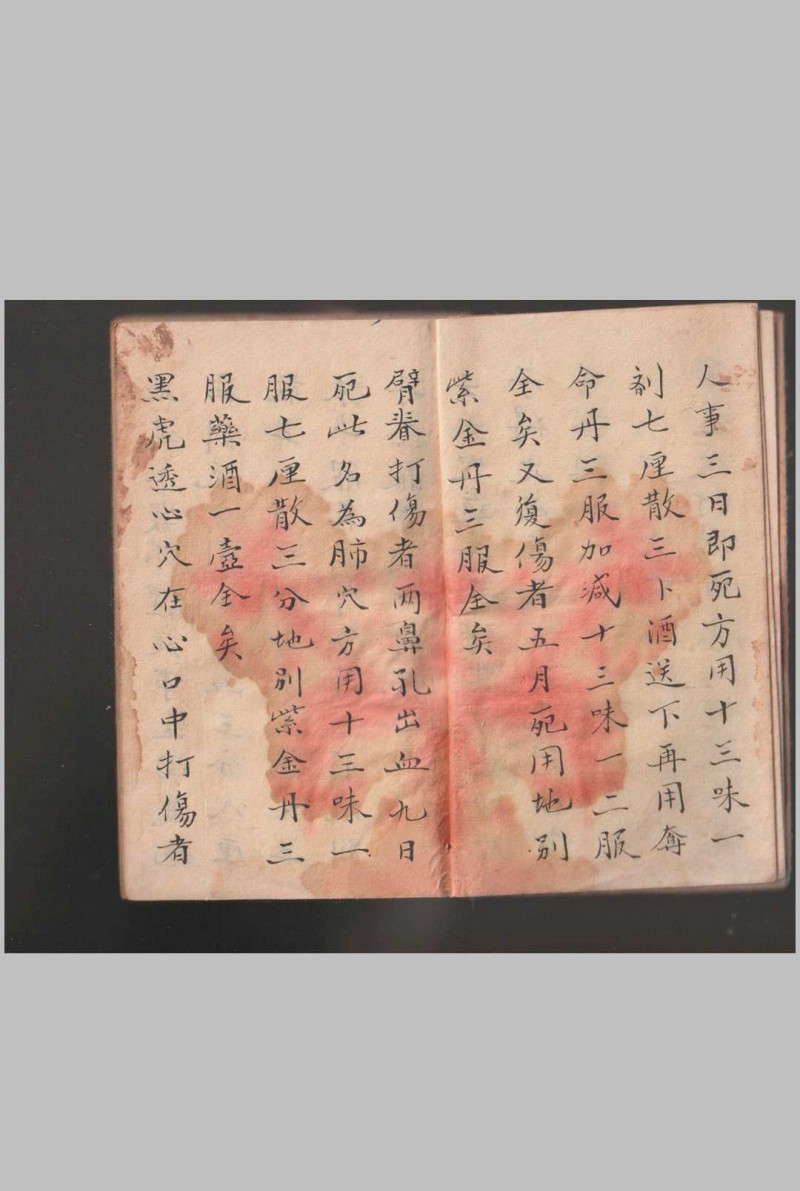 人事三日即死方用十三味一
剤七厘散三卜酒送下再用奪
命丹三服加减十三味一二服
全矣又復傷者五月死用地别
紫金丹三服全矣
臂脊打傷者两鼻孔出血九日
死此名為肺穴方用十三味一
服七厘散三分地别紫金丹三
服藥酒一壺全矣
黑虎透心穴在心口中打傷者